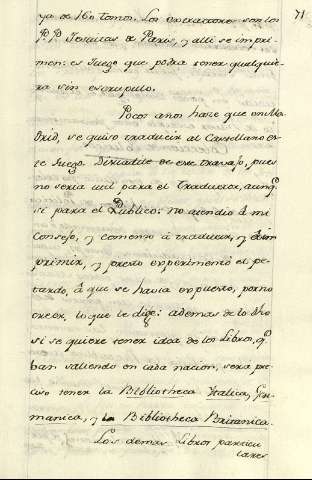 71
ya de 160 tomos. Los operadores son los
P.P. Jesuitas de Paris, y alli se impri-
men: es Juego que podra tener qualquie-
ra sin escrupulo.
Pocos años hace que en Ma-
drid, se quiso traducir al Castellano es-
te Juego. Disuadile de este travajo, pues
no seria util para el Traductor, aunq.
si para el Publico: no atendio à mi
Consejo, y comenzo à traducir, y à im-
primir, y presto experimentò el pe-
tardo, à que se havia expuesto, por no
creer, lo que le dige: ademas de lo dho
si se quiere tener idea de los Libros, q.
van saliendo en cada nacion, sera pre-
ciso tener la Bibliotheca Italica, Ger-
manica, y la Bibliotheca Britanica.
Los demas Libros particu
lares